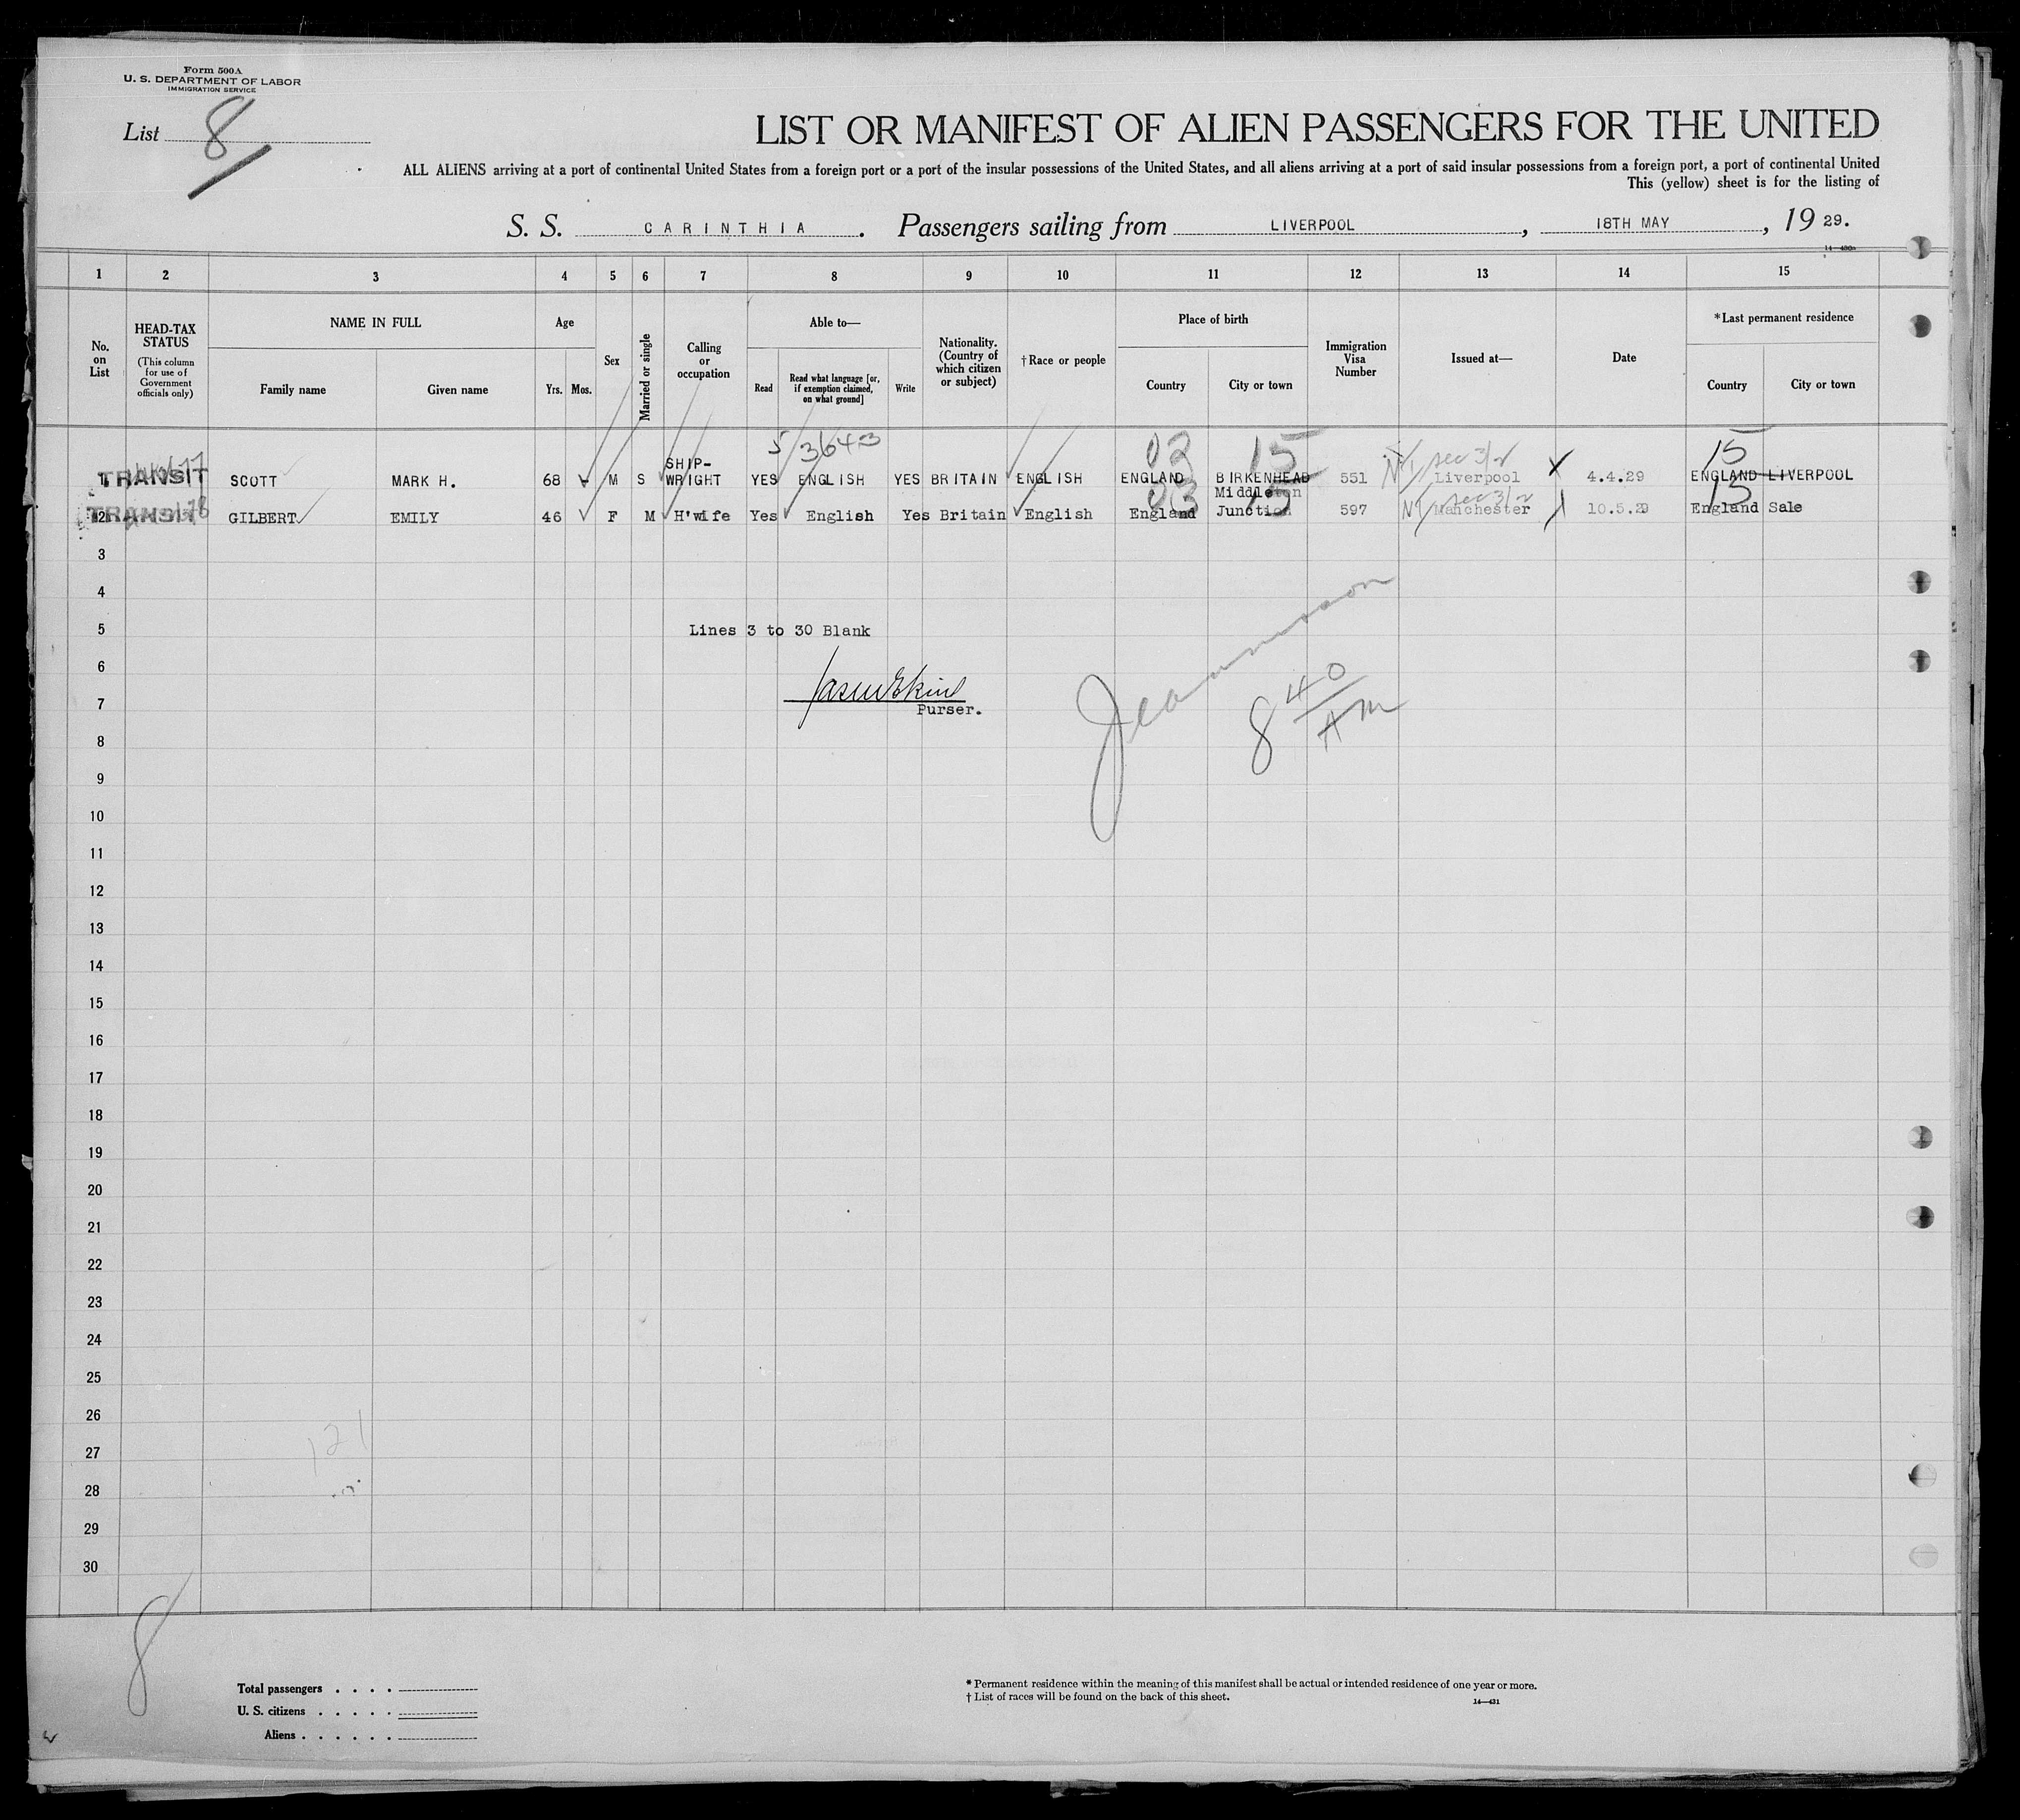 Form 500A
U. S. DEPARTMENT OF LABOR
IMMIGRATION SERVICE
List 8
LIST OR MANIFEST OF ALIEN PASSENGERS FOR THE UNITED
ALL ALIENS arriving at a port of continental United States from a foreign port or a port of the insular possessions of the United States, and all aliens arriving at a port of said insular possessions from a foreign port, a port of continental United
This (yellow) sheet is for the listing of
S. S. CARINTHIA. Passengers sailing from LIVERPOOL, 18TH MAY, 19 29.
1 2 3 4 5 6 7 8 9 10 11 12 13 14 15
No. on List
HEAD-TAX STATUS
(This column for use of Government officials only)
NAME IN FULL
Family name Given name
Age
Yrs. Mos.
Sex
Married or single
Calling or occupation
Able to—
Read Read what language [or, if exemption claimed, on what ground] Write
Nationality. (Country of which citizen or subject)
†Race or people
Place of birth
Country City or town
Immigration Visa Number
Issued at—
Date
*Last permanent residence
Country City or town
5/3643
03 15 15
1 TRANSIT SCOTT MARK H. 68 M S SHIP-WRIGHT YES ENGLISH YES BRITAIN ENGLISH ENGLAND BIRKENHEAD 551 sec 3/2 Liverpool 4.4.29 ENGLAND LIVERPOOL
03 15 15
2 TRANSIT GILBERT EMILY 46 F M H'wife Yes English Yes Britain English England Middleton Junction 597 sec 3/2 Manchester 10.5.29 England Sale
3
4
5 Lines 3 to 30 Blank
6
7 Purser.
8 40 AM
8
9
10
11
12
13
14
15
16
17
18
19
20
21
22
23
24
25
26
121
27
28
29
30
8
Total passengers . . . .
U. S. citizens . . . . .
Aliens . . . . . .
* Permanent residence within the meaning of this manifest shall be actual or intended residence of one year or more.
† List of races will be found on the back of this sheet.
14—431